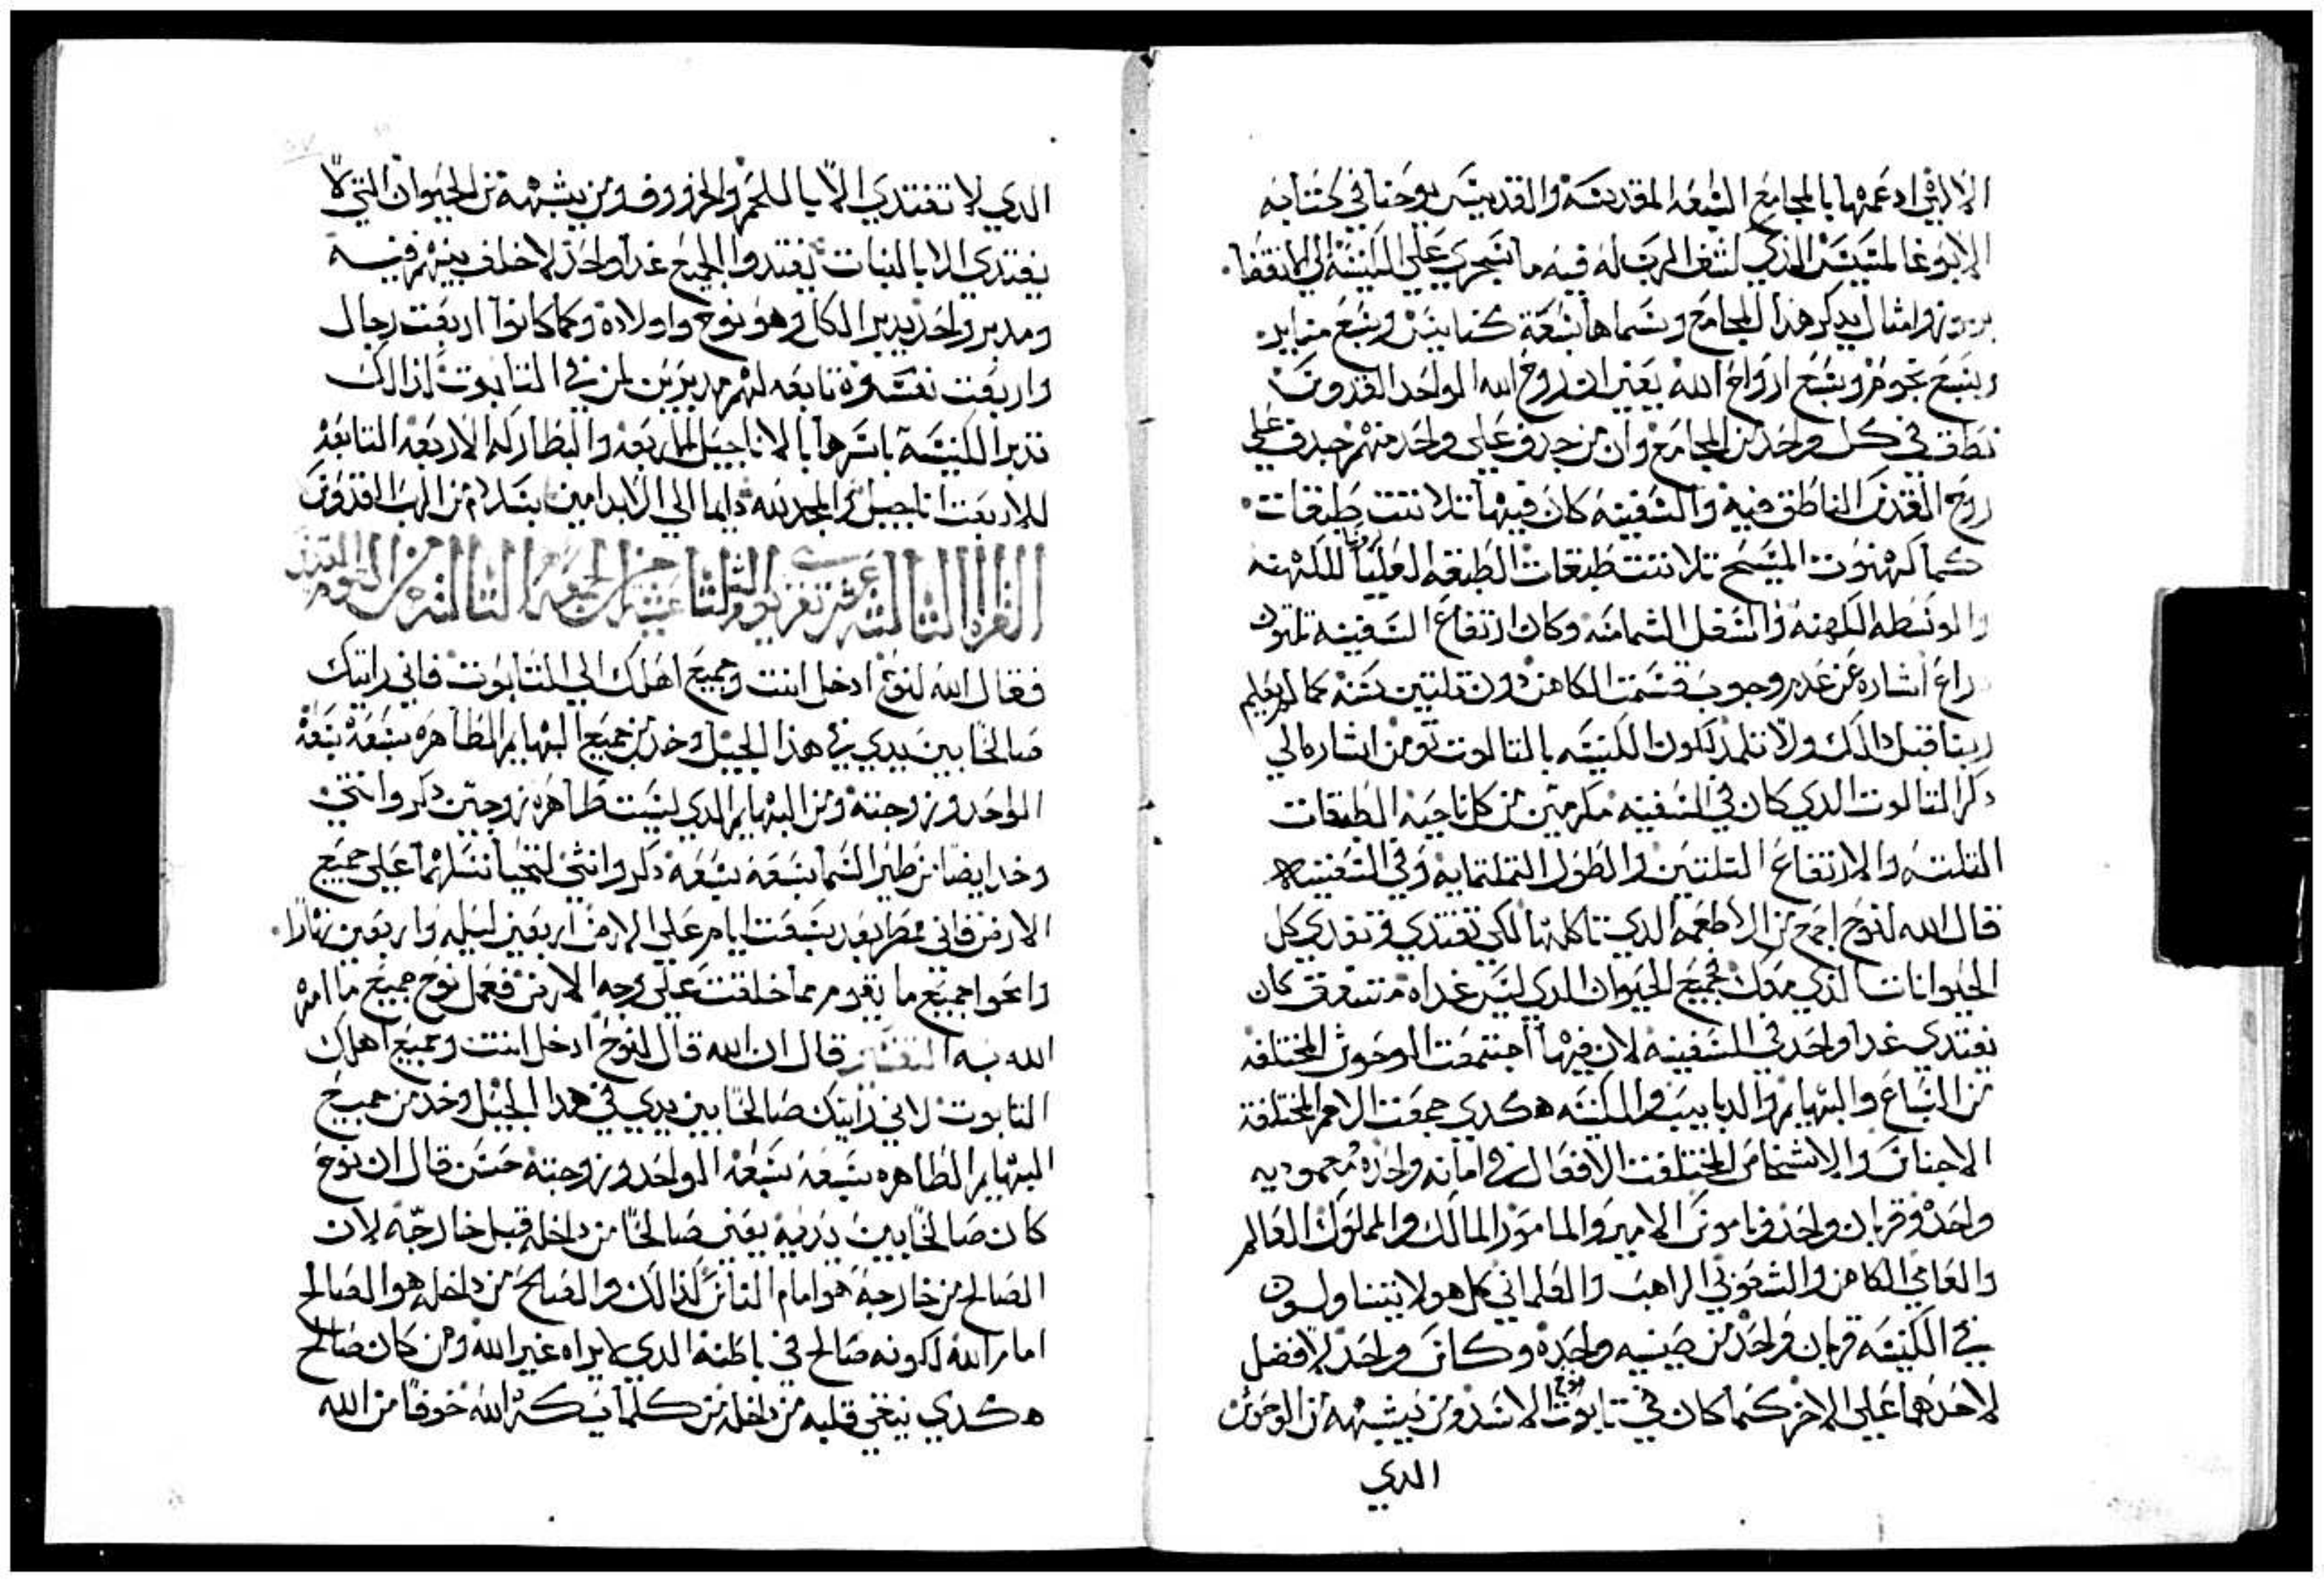 الارثي ادعمها بالمجامع السبعه المقدسة والقديس يوحنا في كتابه
الابوغالمسيس الذي كشف الرب له فيه ما سيجري على الكنيسة الى الانقضا
برموز وامثال يدكر هذا المجامع وسماها سبعة كنايس وسبع منابر
وسبع نجوم وسبع ارواح الله يعني ان روح الله الواحد القدوس
نطق في كل واحد من المجامع وان من جدف على واحد منهم جدف على
روح القدس الناطق فيه والسفينه كان فيها تلاتت طبقات
كما كهنوت المسيح تلاتت طبقات الطبقه العليا للكهنه
والوسطه الكهنه والسفل الشمامسه وكان ارتفاع السفينه تلتون
دراع اشاره عن عدم وجوب قسمت الكاهن دون تلتين سنه كما لم يعلم
ربنا قبل دالك ولا تلمد لكون الكنيسه بالتالوت تومن اشاره الي
دكر التالوت الدي كان في السفينه مكرمين من كل ناحيه الطبقات
التلته والارتفاع التلتين والطول التلتمايه وفي السفينه
قال الله لنوح اجمع من الاطعمه الدي تاكلها لكي تغتدي وتغدي كل
الحيوانات الدي معك فجميع الحيوان الدي ليس غداه متفق كان
يغتدي غدا واحد في السفينه لان فيها اجتمعت الوحوش المختلفه
من السباع والبهايم والدبابيب والكنيسه هكدي جمعت الامم المختلفة
الاجناس والاشخاص المختلفت الافعال في امانه واحده معموديه
واحده وقربان واحد وناموس الامير والمامور المالك والمملوك العالم
والعامي الكاهن والشعوبي الراهب والعلماني كل هولا يتناولون
في الكنيسه قربان واحد من صينيه واحده وكاس واحد لافضل
لاحدهما على الاخر كما كان في تابوت نوح الاسد ومن يشبهه من الوحوش
الدي
الدي لا تغتدي الا باللحم والخروف ومن يشبهه من الحيوان التي لا
يغتدي الا بالنبات يغتدوا الجميع غدا واحد لا خلف بينهم فيه
ومدبر واحد يدبر الكل وهو نوح واولاده وكما كانوا اربعت رجال
واربعت نسوه تابعه لهم مدبرين لمن في التابوت كدالك
تدبر الكنيسة باسرها بالاناجيل الاربعه والبطاركه الاربعه التابعه
للاربعت اناجيل والمجد لله دايما الي الابد امين بسلام من الرب القدوس
القراه التالته عشر تقرى يوم التلتا عشيه من الجمعه التالته من الصوم المقدس
فقال الله لنوح ادخل انت وجميع اهلك الي التابوت فاني رايتك
صالحا بين يدي في هذا الجيل وخد من جميع البهايم الطاهره سبعه سبعه
الواحد وزوجته ومن البهايم الدي ليست طاهره زوجين دكر وانتي
وخد ايضا من طير السما سبعه سبعه دكر وانثى لتحيا نسلهما على جميع
الارض فاني ممطر بعد سبعت ايام على الارض اربعين ليله واربعين نهارا
وامحوا جميع ما يقوم مما خلقت على وجه الارض فعمل نوح جميع ما امره
الله به التفسير قال ان الله قال لنوح ادخل انت وجميع اهلك
التابوت لاني رايتك صالحا بين يدي في هدا الجيل وخد من جميع
البهايم الطاهره سبعه سبعه الواحد وزوجته حسن قال ان نوح
كان صالحا بين يديه يعني صالحا من داخله قبل خارجه لان
الصالح من خارجه هو امام الناس كذالك والصالح من داخله هو الصالح
امام الله لكونه صالح في باطنه الدي لا يراه غير الله ومن كان صالح
هكدي ينقي قلبه من داخله من كلما يكره الله خوفا من الله